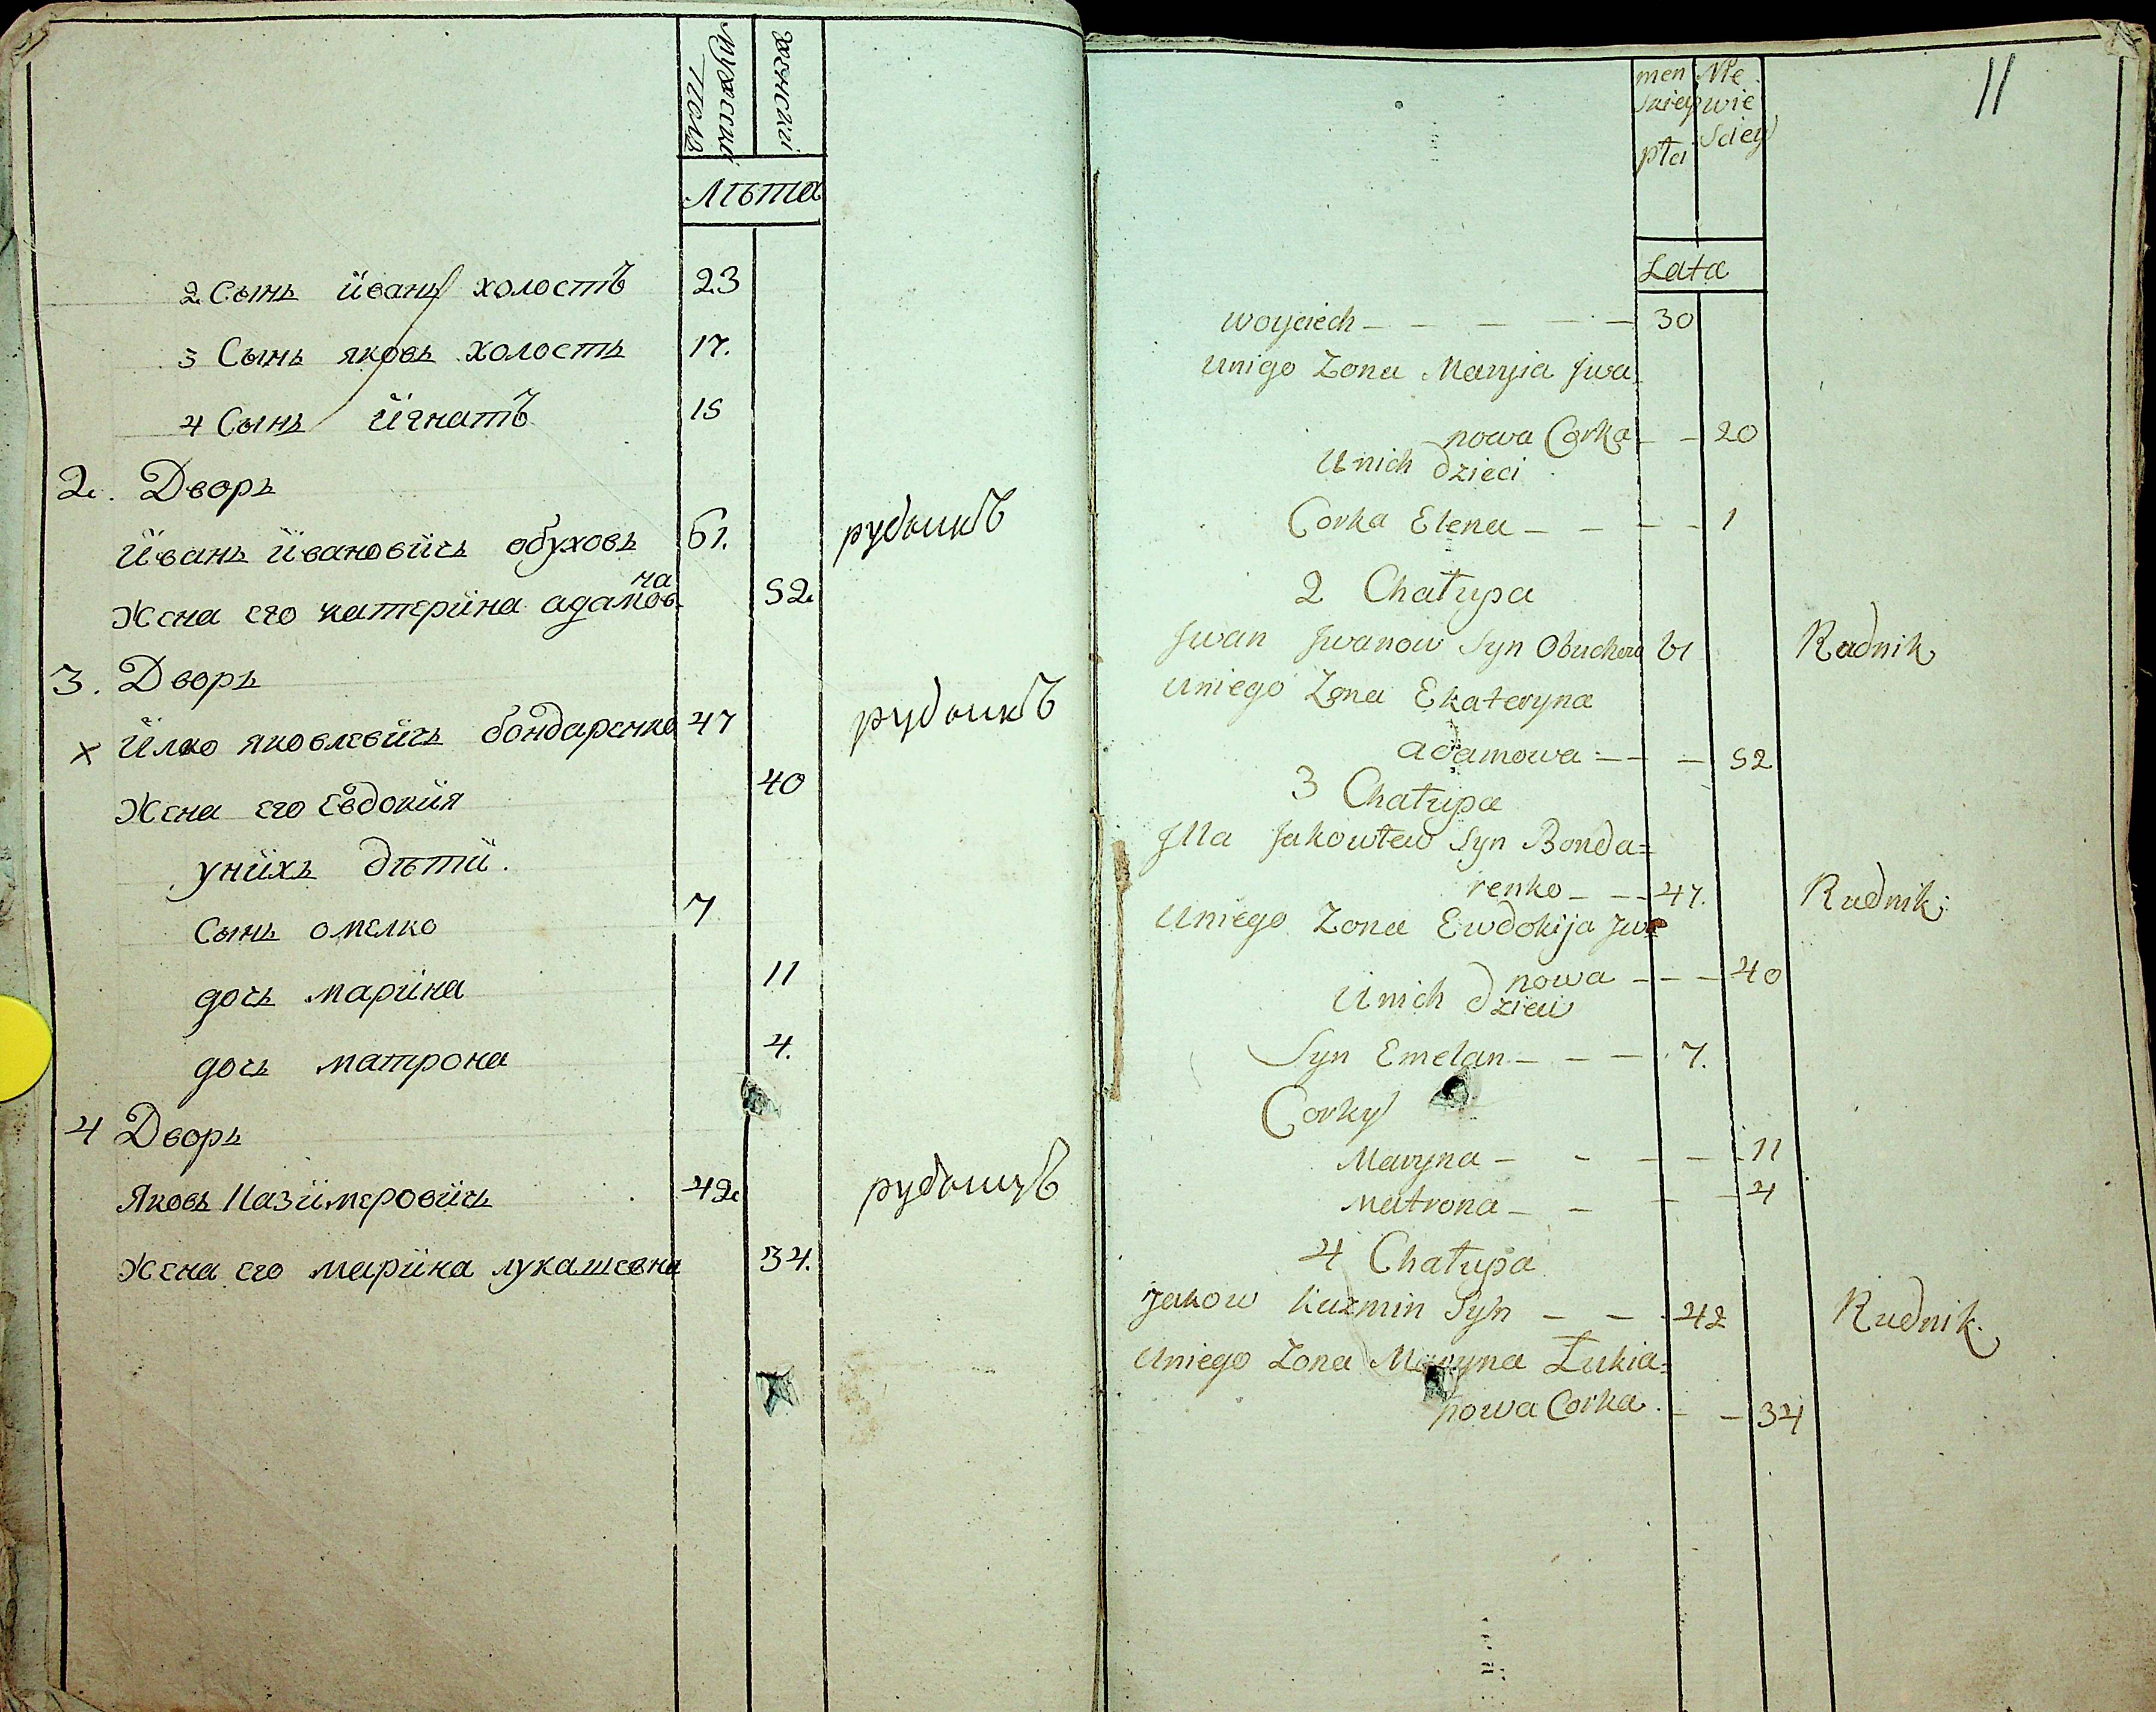 мужескій
женскій
полъ
лѣта
2 Сынъ йванъ холостъ 23
3 Сынъ яковъ холостъ 17.
4 Сынъ йгнатъ 15
2. Дворъ
Йванъ йвановичъ обуховъ 61. рудникъ
Жена его катерина адамов- 52.
на
3. Дворъ
х Илко яковлевичъ бондаренко 47 рудникъ
Жена его Евдокия 40
унихъ дѣти.
Сынъ омелко 7
дочь марина 11
дочь матрона 4.
4 Дворъ
Яковъ Казимеровичъ 42. рудникъ
Жена его марина лукашевна 34.
11
men Nie
skiey wie
płci sciey
Lata
Woyciech – – – – – 30
Unigo Zona Maryia Jwa
nowa Corka – – 20
Unich dzieci
Corka Elena – – – – 1
2 Chałupa
Jwan Jwanow Syn Obuchow 61 Rudnik
Uniego Zona Ekateryna
adamowa – – – 52
3 Chałupa
Jlla Jakowlew Syn Bonda=
renko – – – 47. Rudnik.
Uniego Zona Ewdokija Jwa
nowa – – – 40
Unich dzieci
Syn Emelan – – – 7.
Corky
Maryna – – – – – 11
Matrona – – – – 4
4 Chałupa
Jakow Kuzmin Syn – – – 42 Rudnik.
Uniego Zona Maryna Łukia=
nowa Corka. – – 34